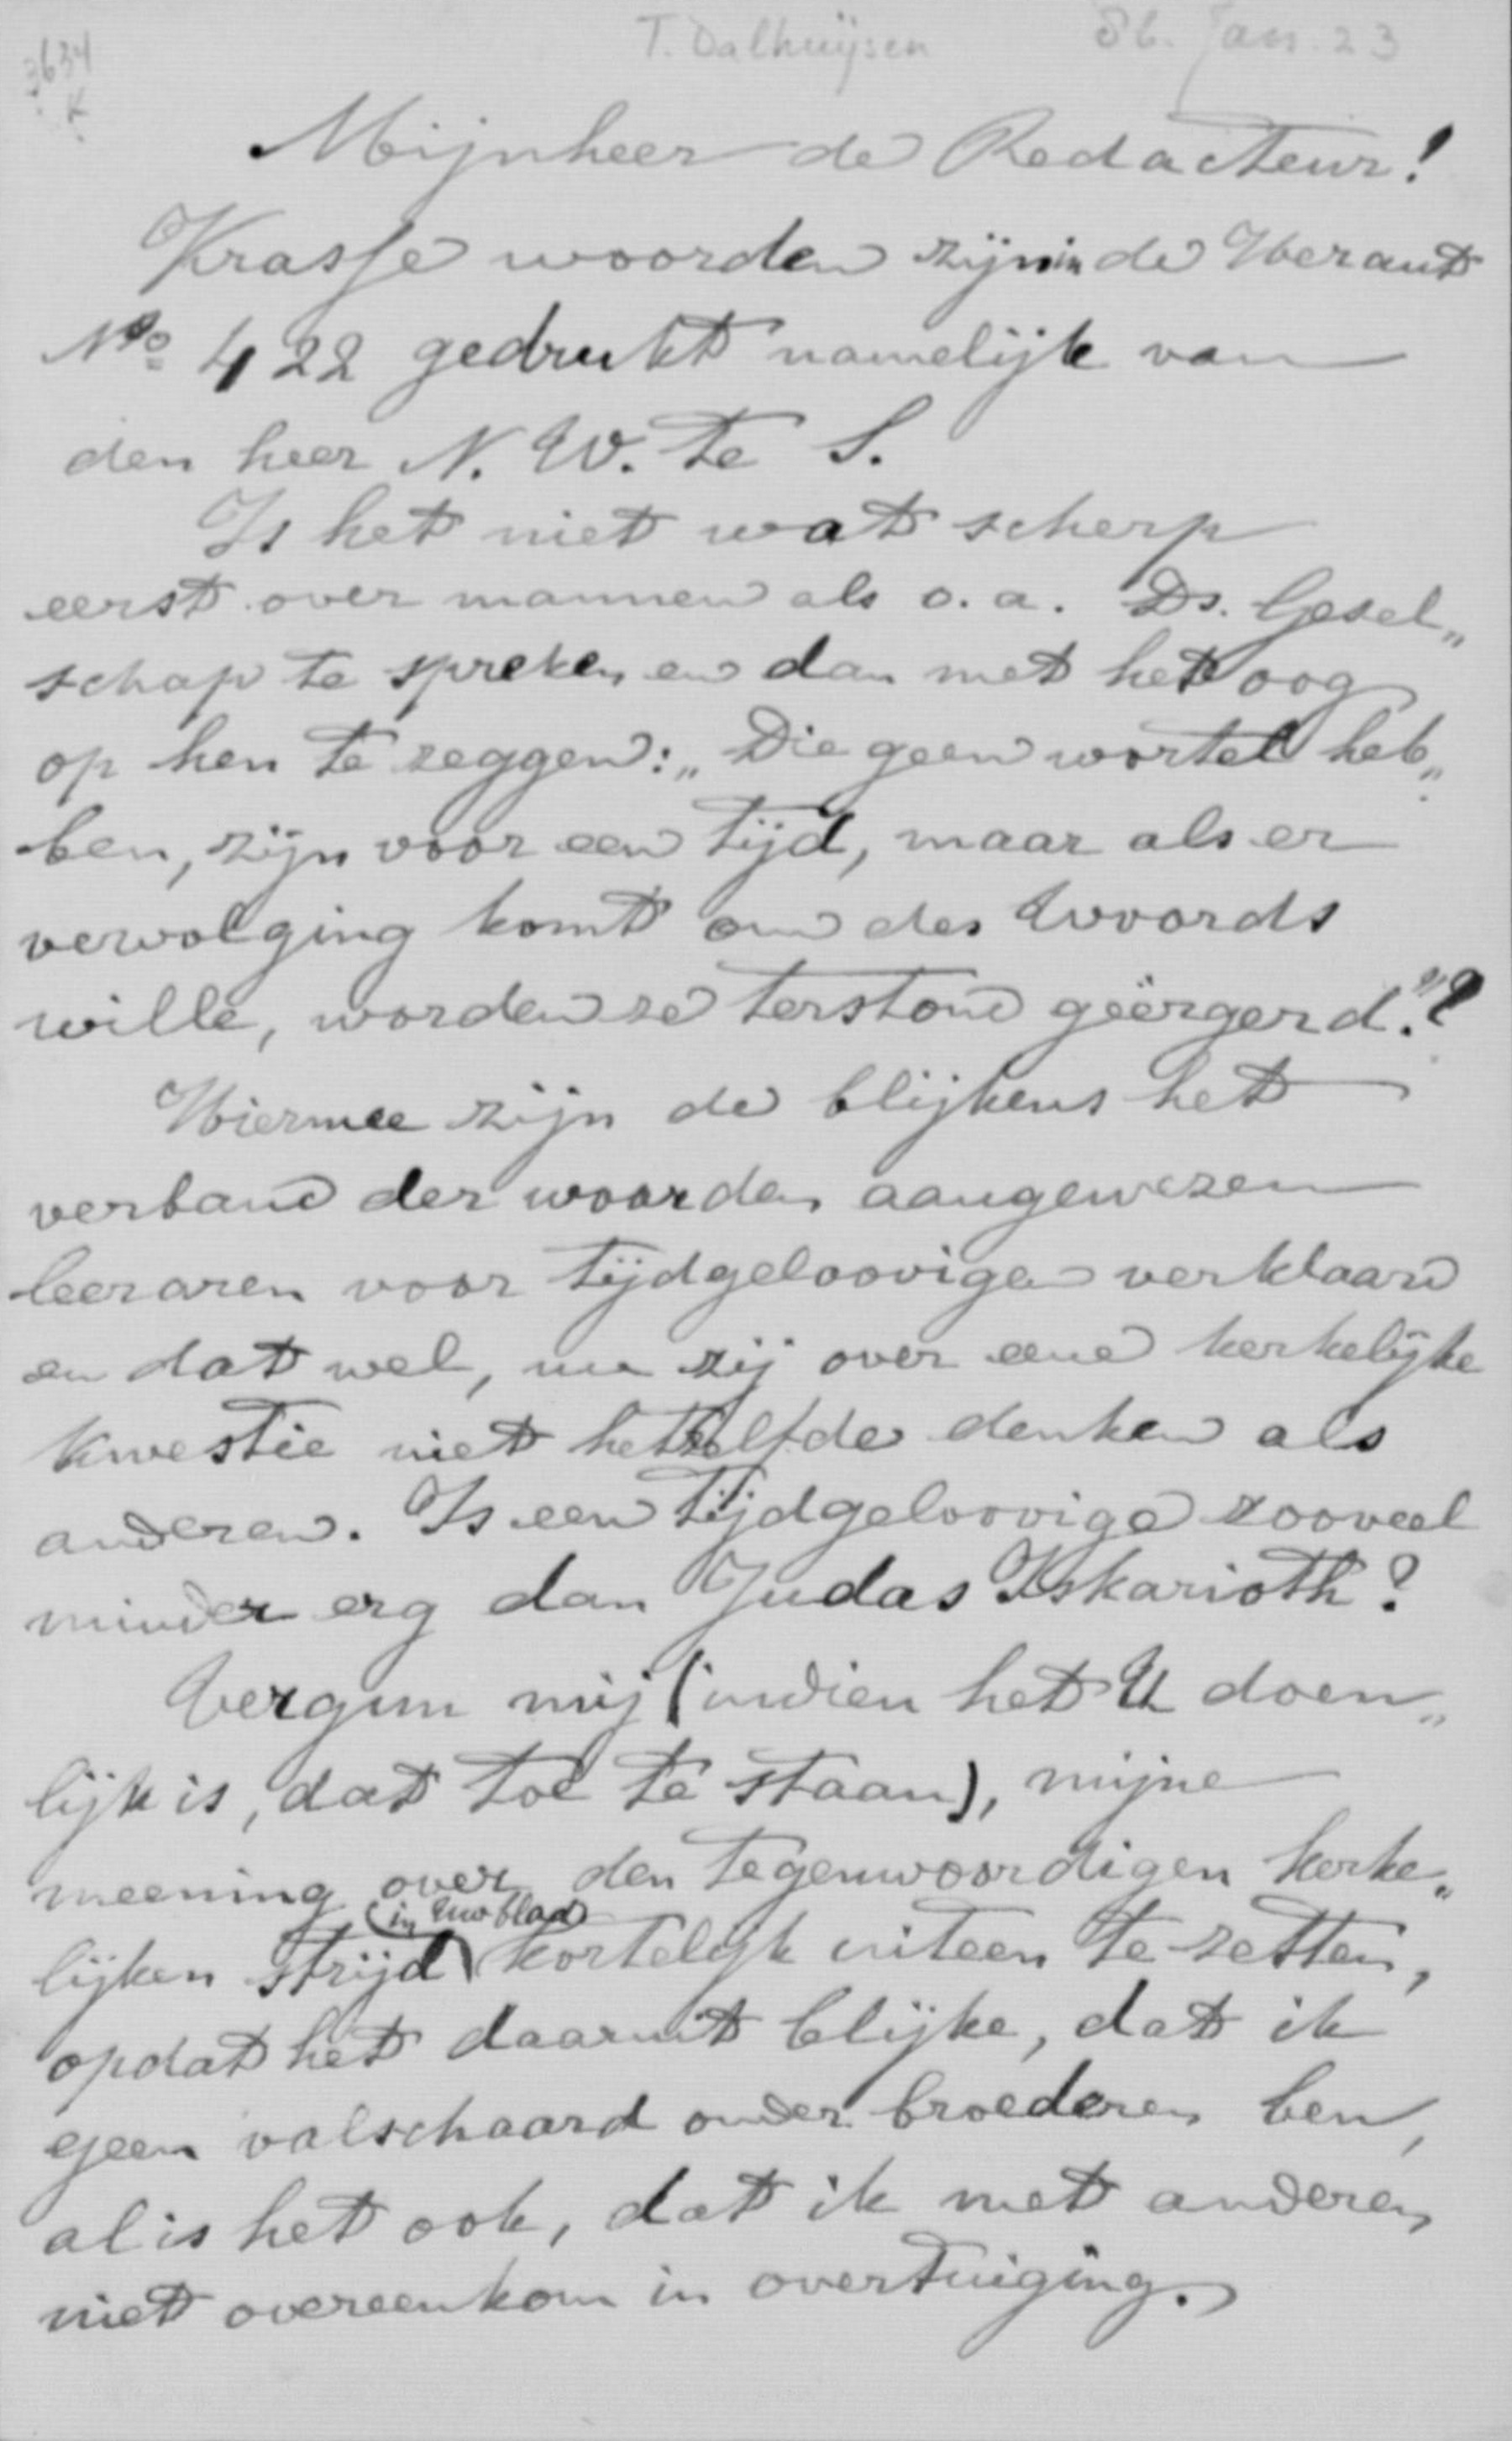 T. Dalhuijsen 86. Jan. 23
3634
K
Mijnheer de Redacteur!
Krasse woorden zijn in de Heraut
No 422 gedrukt namelijk van
den heer N. W. te S.
Is het niet wat scherp
eerst over mannen als o.a. Ds. Gesel„
schap te spreken en dan met het oog
op hen te zeggen: „Die geen wortel heb„
ben, zijn voor een tijd, maar als er
vervolging komt om des Woords
wille, worden ze terstond geërgerd."?
Hiermee zijn de blijkens het
verband der woorden aangewezen
leeraren voor tijdgeloovigen verklaard
en dat wel, nu zij over eene kerkelijke
kwestie niet hetzelfde denken als
anderen. Is een tijdgeloovige zooveel
minder erg dan Judas Iskarioth?
Vergun mij (indien het U doen„
lijk is, dat toe te staan), mijne
meening over den tegenwoordigen kerke„
(in Uw blad)
lijken strijd kortelijk uiteen te zetten,
opdat het daaruit blijke, dat ik
geen valschaard onder broederen ben,
al is het ook, dat ik met anderen
niet overeenkom in overtuiging.